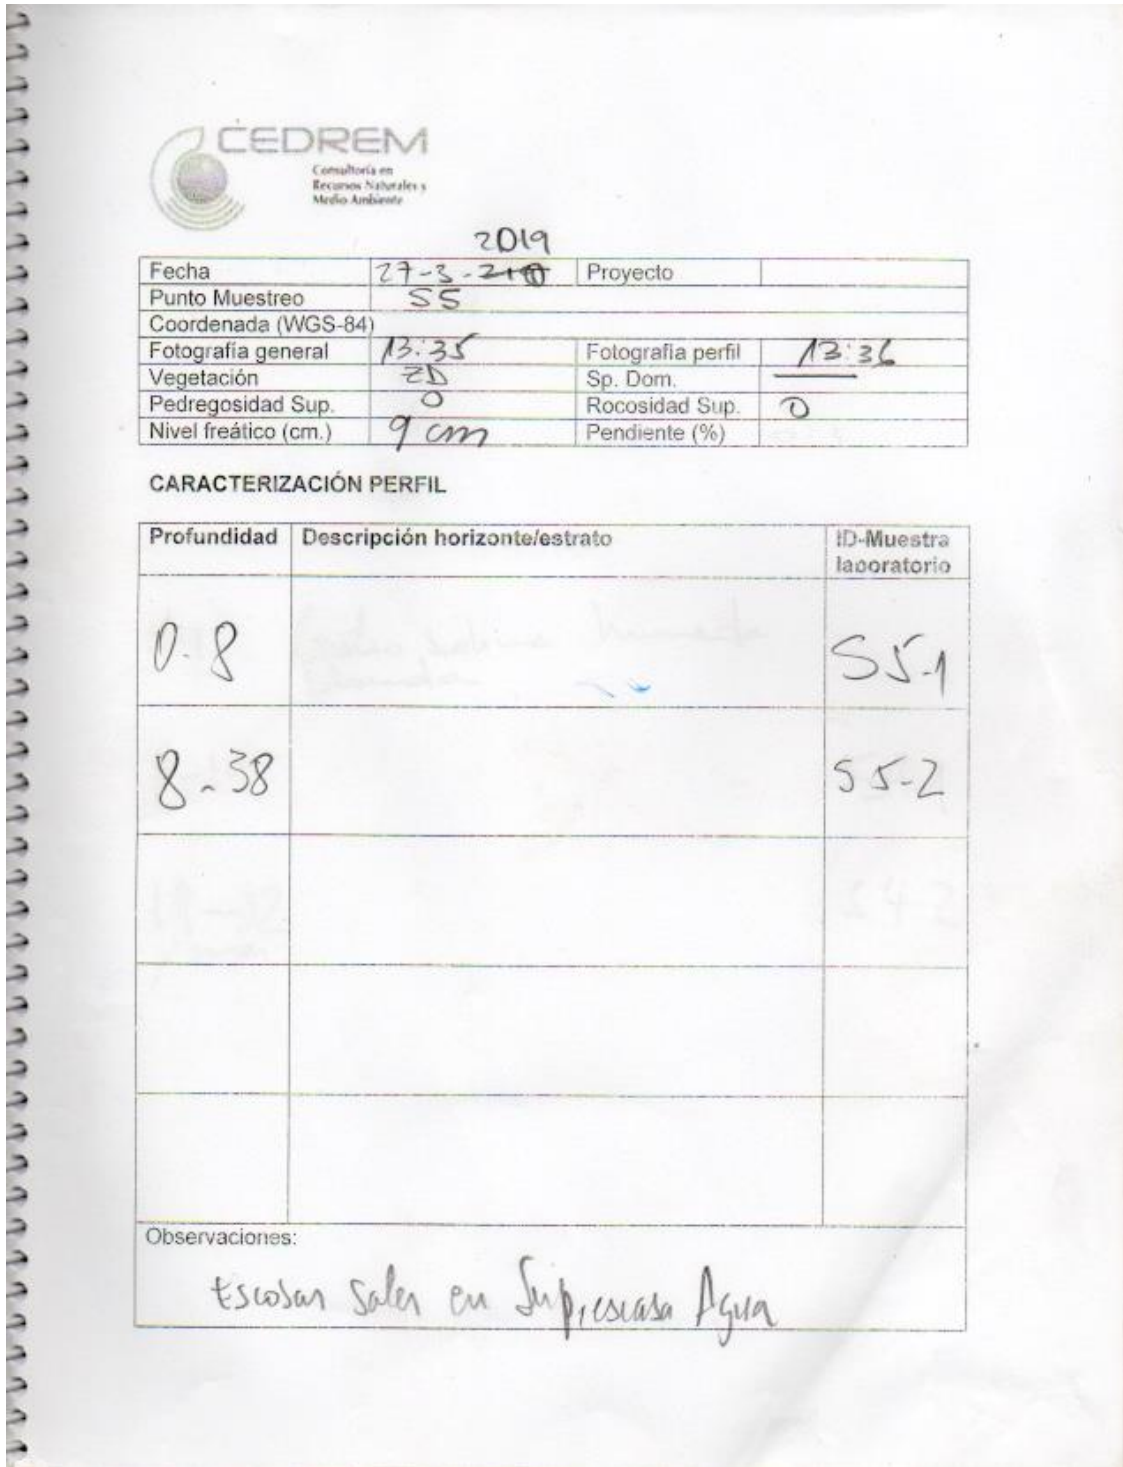 CEDREM
Consultoría en
Recursos Naturales y
Medio Ambiente
2019
Fecha 27-3-210 Proyecto
Punto Muestreo S5
Coordenada (WGS-84)
Fotografía general 13:35 Fotografía perfil 13:36
Vegetación ZD Sp. Dom. —
Pedregosidad Sup. 0 Rocosidad Sup. 0
Nivel freático (cm.) 9 cm Pendiente (%)
CARACTERIZACIÓN PERFIL
Profundidad Descripción horizonte/estrato ID-Muestra
laboratorio
0-8 S5-1
8-38 S5-2
Observaciones:
Escosas Sales en Sup, escasa Agua